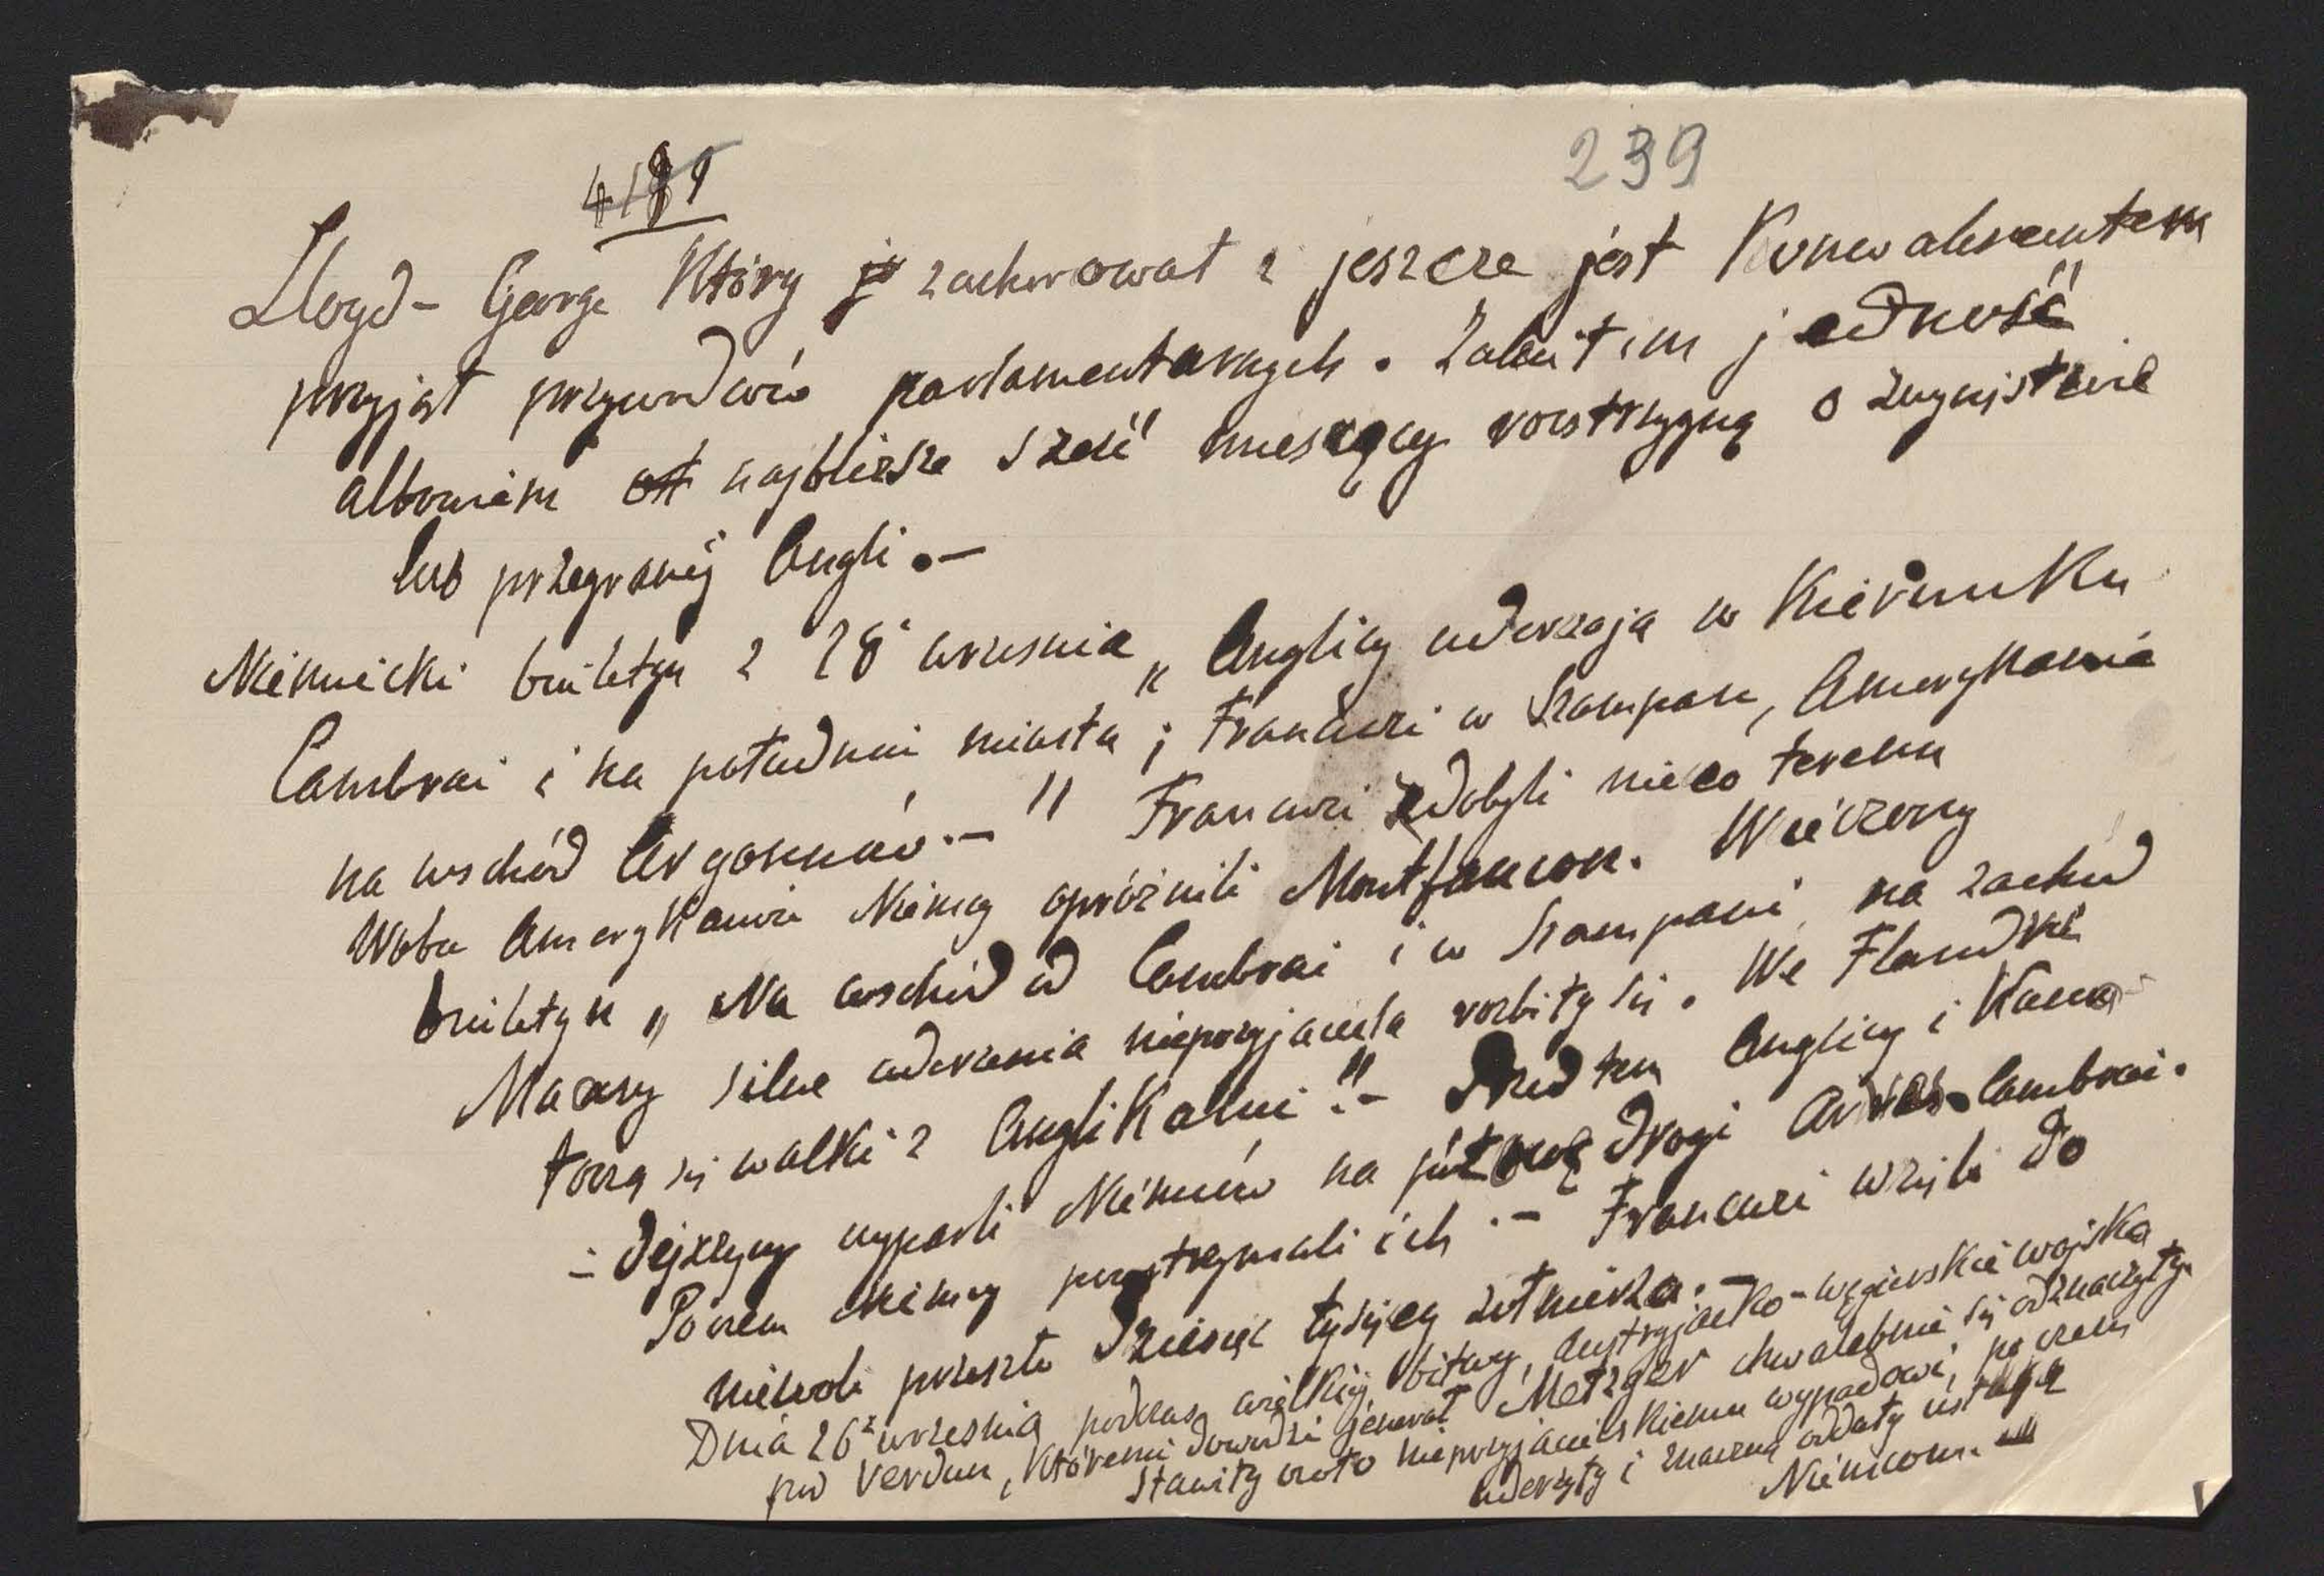 239
4189
Lloyd-George Który zachorował i jeszcze jest Konwalescentem
przyjął przywódców parlamentarnych. Zalecił im jedność
albowiem najbliższe sześć miesięcy rozstrzygną o zwycięstwie
lub przegranéj Anglii.—
Niemiecki biuletyn z 28 wrzesnia „Anglicy uderzają w Kierunku
Cambrai i na południe miasta; Francuzi w Szampanii, Amerykanie
na wschód Argonnów.—" Francuzi zdobyli nieco terenu
Wobec Amerykanów Niemcy opróżnili Montfaucon. Wieczorny
biuletyn „Na wschód od Cambrai i w Szampanii, na zachód
Mozy silne uderzenia nieprzyjaciela rozbiły się. We Flandrii
toczą się walki z Anglikami".— Przed tem Anglicy i Kana-
-dejczycy wyparli Niemców na połowę drogi Arras-Cambrai.
Poczem Niemcy powstrzymali ich.— Francuzi wzięli do
niewoli przeszło dziesięć tysięcy żołnierza.—
Dnia 26 wrzesnia podczas wielkiéj bitwy, austryjacko-węgierskie wojska
pod Verdun, Któremi dowodzi jenerał Metzger chwalebnie się odznaczyły.
Stawiły czoło nieprzyjacielskiemu wypadowi, poczem
uderzyły i znaczną oddały usługę
Niemcom.—